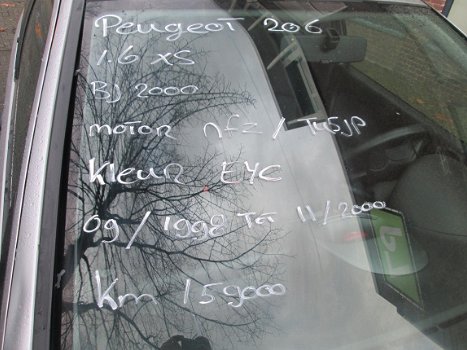 Peugeot 206
1.6 XS
BJ 2000
motor nfz / TU5JP
kleur EYC
09/1998 Tot 11/2000
Km 159000